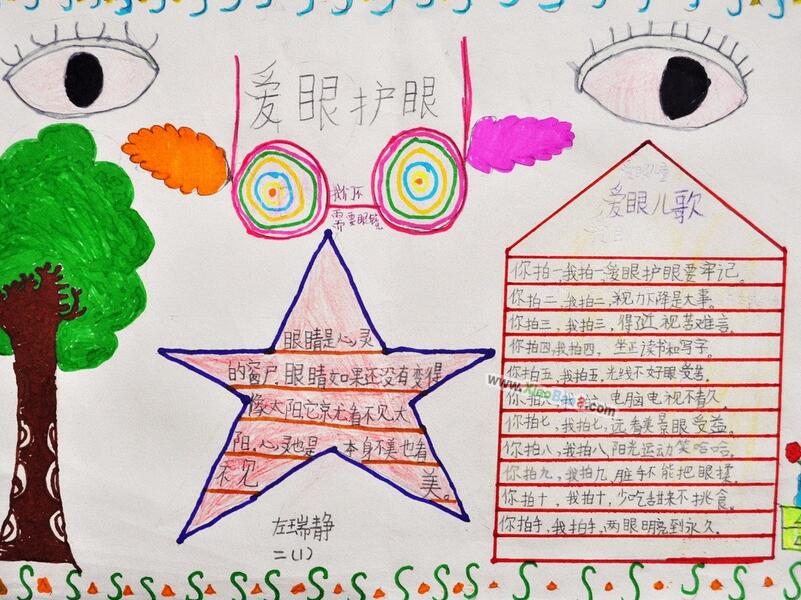 爱眼护眼
我们不
需要眼镜
眼睛是心灵
的窗户,眼睛如果还没有变得
像太阳,它京尤看不见太
阳,心灵也是 本身不美也看
不见 美。
左瑞静
二(1)
爱眼儿歌
你拍一,我拍一,爱眼护眼要牢记。
你拍二,我拍二,视力下降是大事。
你拍三,我拍三,得了近视苦难言。
你拍四,我拍四,坐正读书和写字。
你拍五,我拍五,光线不好眼受苦。
你拍六,我拍六,电脑电视不看久。
你拍七,我拍七,远看美景眼受益。
你拍八,我拍八,阳光运动笑哈哈。
你拍九,我拍九,脏手不能把眼揉。
你拍十,我拍十,少吃甜来不挑食。
你拍手,我拍手,两眼明亮到永久。